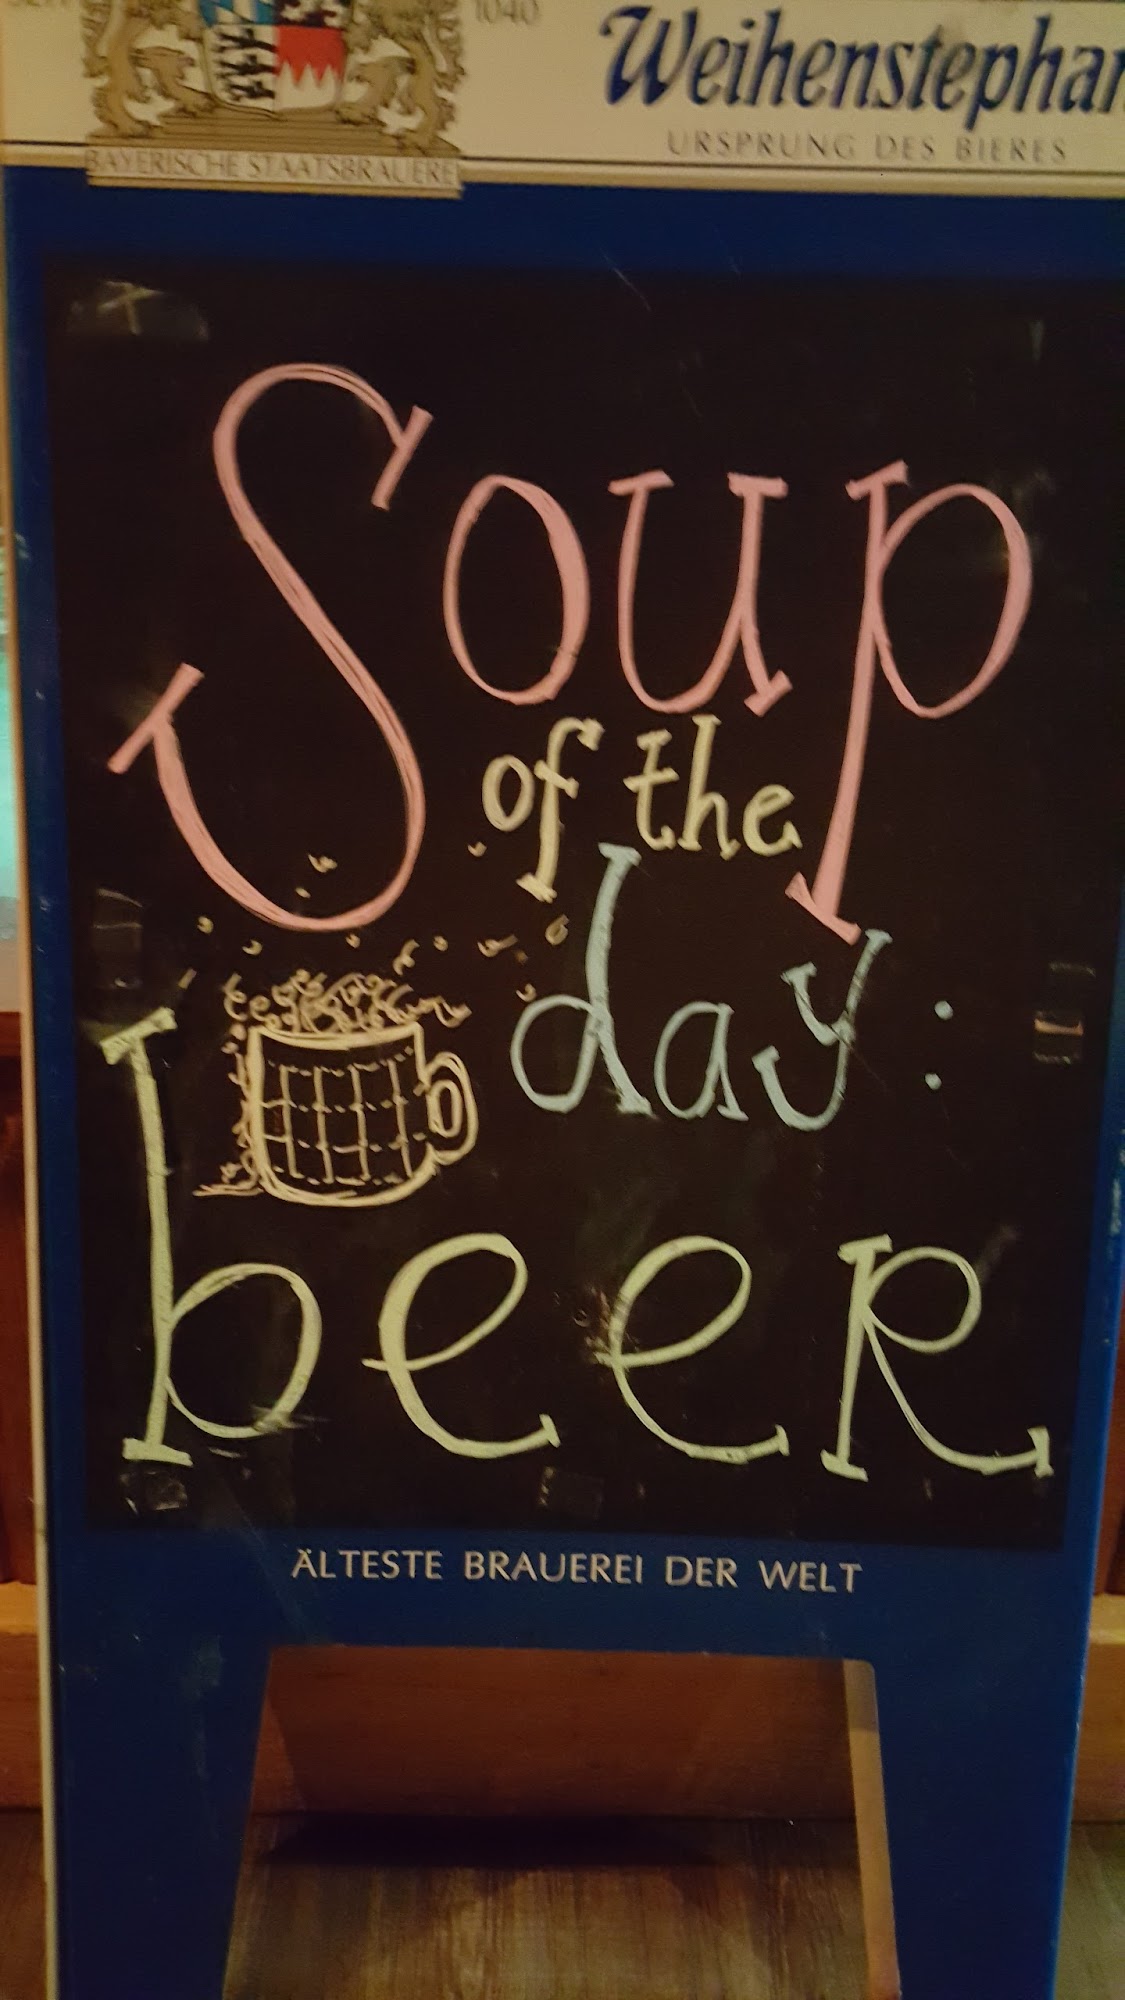 1040
Weihenstephan
URSPRUNG DES BIERES
BAYERISCHE STAATSBRAUEREI
Soup
of the
day:
beer
ÄLTESTE BRAUEREI DER WELT